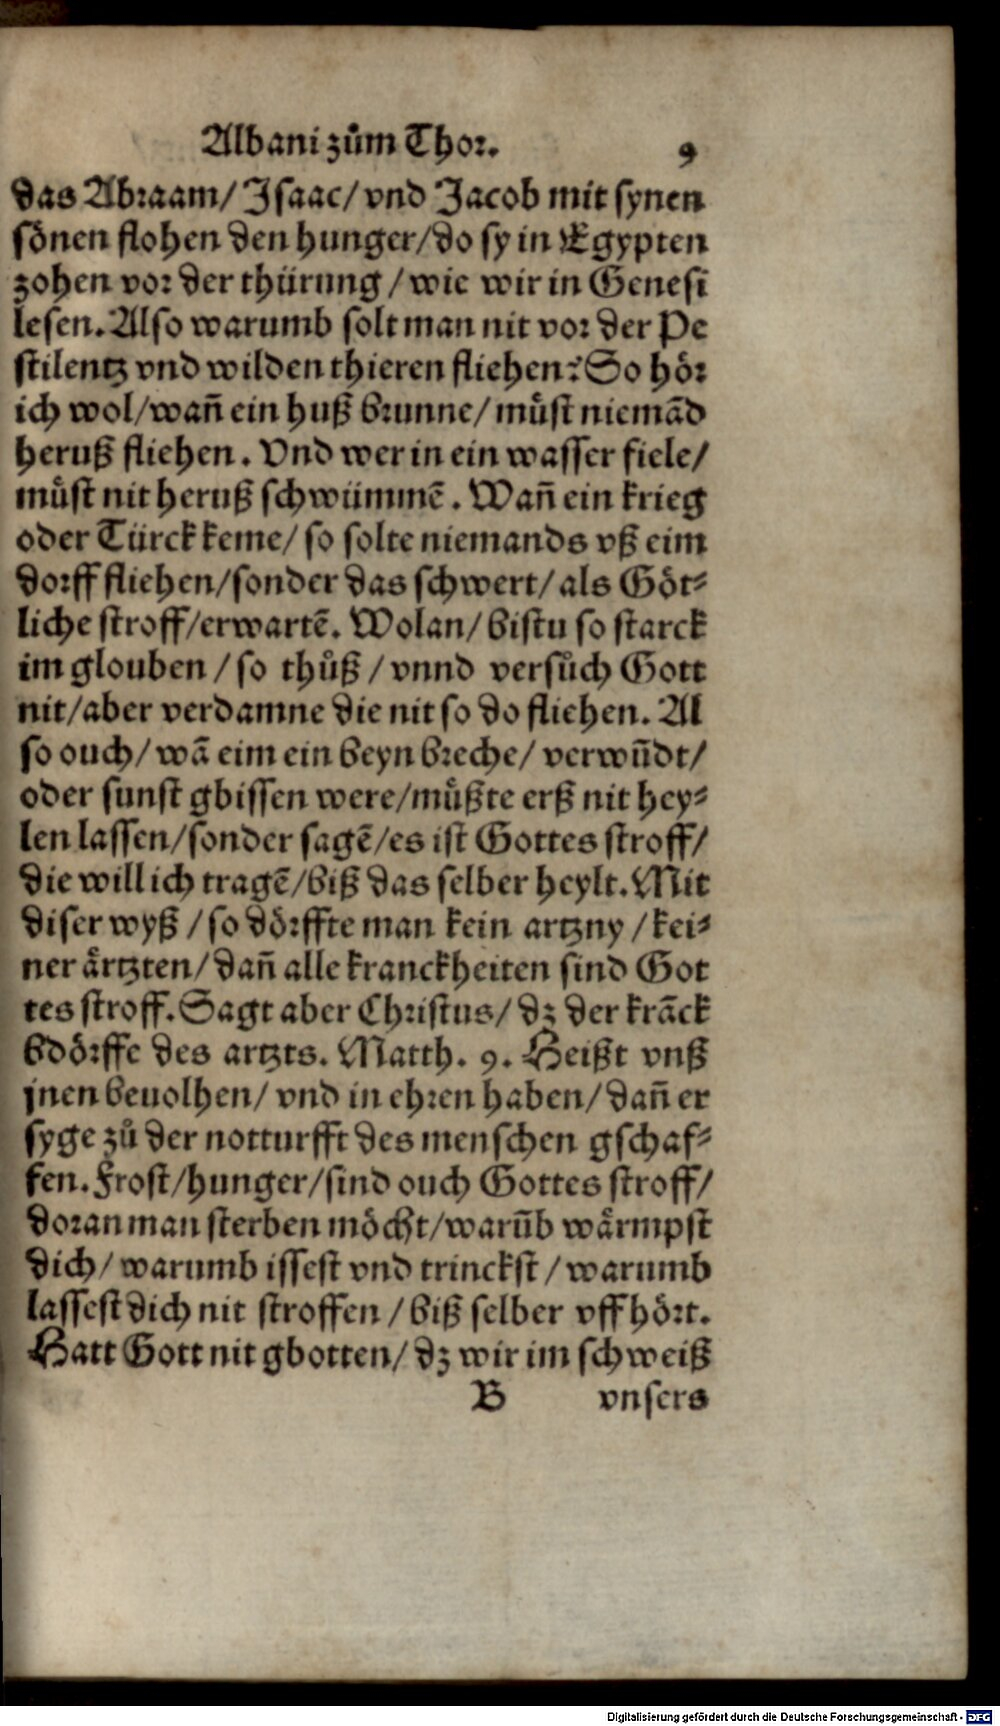 Albani zům Thor. 9
das Abraam/ Isaac/ vnd Jacob mit synen
sönen flohen den hunger/ do sy in Egypten
zohen vor der thürung / wie wir in Genesi
lesen. Also warumb solt man nit vor der Pe
stilentz vnd wilden thieren fliehen? So hör
ich wol/ wañ ein huß brunne/ můst niemād
heruß fliehen. Vnd wer in ein wasser fiele/
můst nit heruß schwümmē. Wañ ein krieg
oder Türck keme/ so solte niemands vß eim
dorff fliehen/ sonder das schwert/ als Göt⸗
liche stroff/ erwartē. Wolan/ bistu so starck
im glouben / so thůß / vnnd versůch Gott
nit/ aber verdamne die nit so do fliehen. Al
so ouch/ wā eim ein beyn breche/ verwūdt/
oder sunst gbissen were/ můßte erß nit hey⸗
len lassen/ sonder sagē/ es ist Gottes stroff/
die will ich tragē/ biß das selber heylt. Mit
diser wyß / so dörffte man kein artzny / kei⸗
ner ärtzten/ dañ alle kranckheiten sind Got
tes stroff. Sagt aber Christus/ dz der krāck
bdörffe des artzts. Matth. 9. Heißt vnß
jnen beuolhen/ vnd in ehren haben/ dañ er
syge zů der notturfft des menschen gschaf⸗
fen. Frost/ hunger/ sind ouch Gottes stroff/
doran man sterben möcht/ warūb wärmpst
dich/ warumb issest vnd trinckst / warumb
lassest dich nit stroffen / biß selber vffhört.
Hatt Gott nit gbotten/ dz wir im schweiß
B vnsers
Digitalisierung gefördert durch die Deutsche Forschungsgemeinschaft - DFG